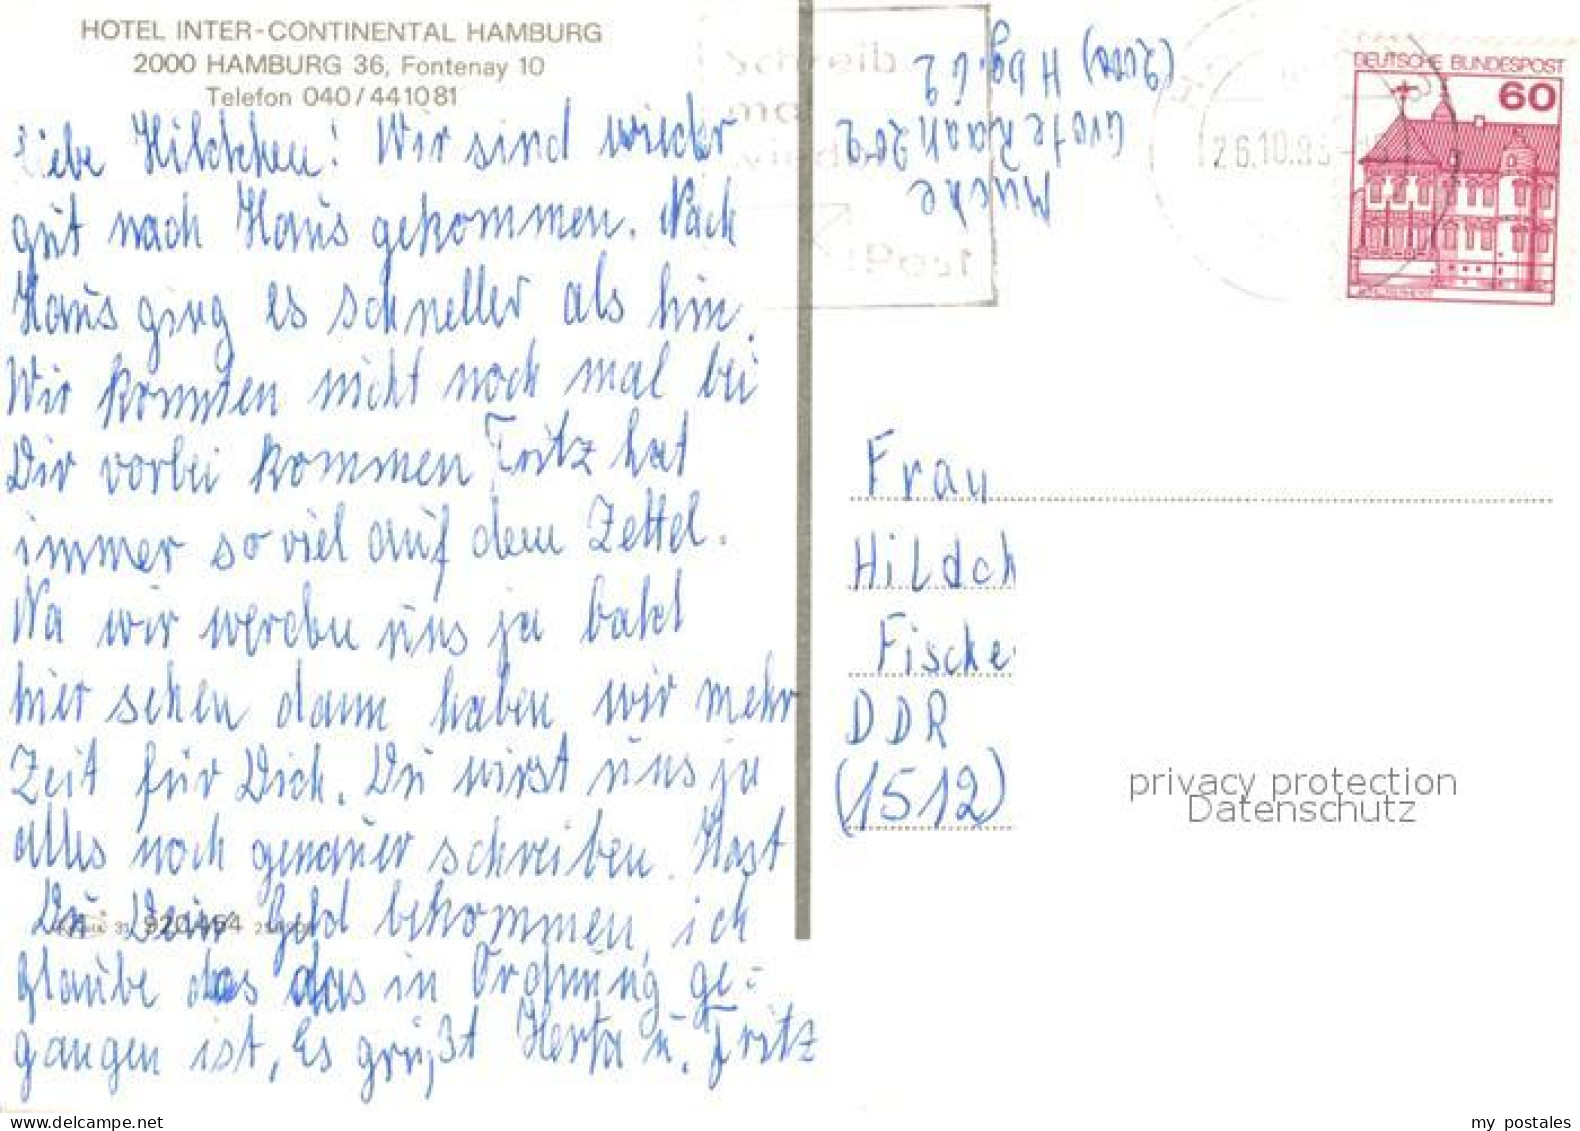 HOTEL INTER-CONTINENTAL HAMBURG
2000 HAMBURG 36, Fontenay 10
Telefon 040/441081
Liebe Hildchen! Wir sind wieder
gut nach Haus gekommen. Nach
Haus ging es schneller als hin.
Wir konnten nicht noch mal bei
Dir vorbei kommen Fritz hat
immer so viel auf dem Zettel.
Na wir werden uns ja bald
hier sehen dann haben wir mehr
Zeit für Dich. Du wirst uns ja
alles noch genauer schreiben. Hast
Du Dein Geld bekommen, ich
glaube das das in Ordnung ge-
gangen ist, Es grüßt Herta u. Fritz
(2000) Hbg. 62
26.10.8
DEUTSCHE BUNDESPOST
60
Frau
Hildch
Fische
DDR
(1512)
privacy protection
Datenschutz
my postales